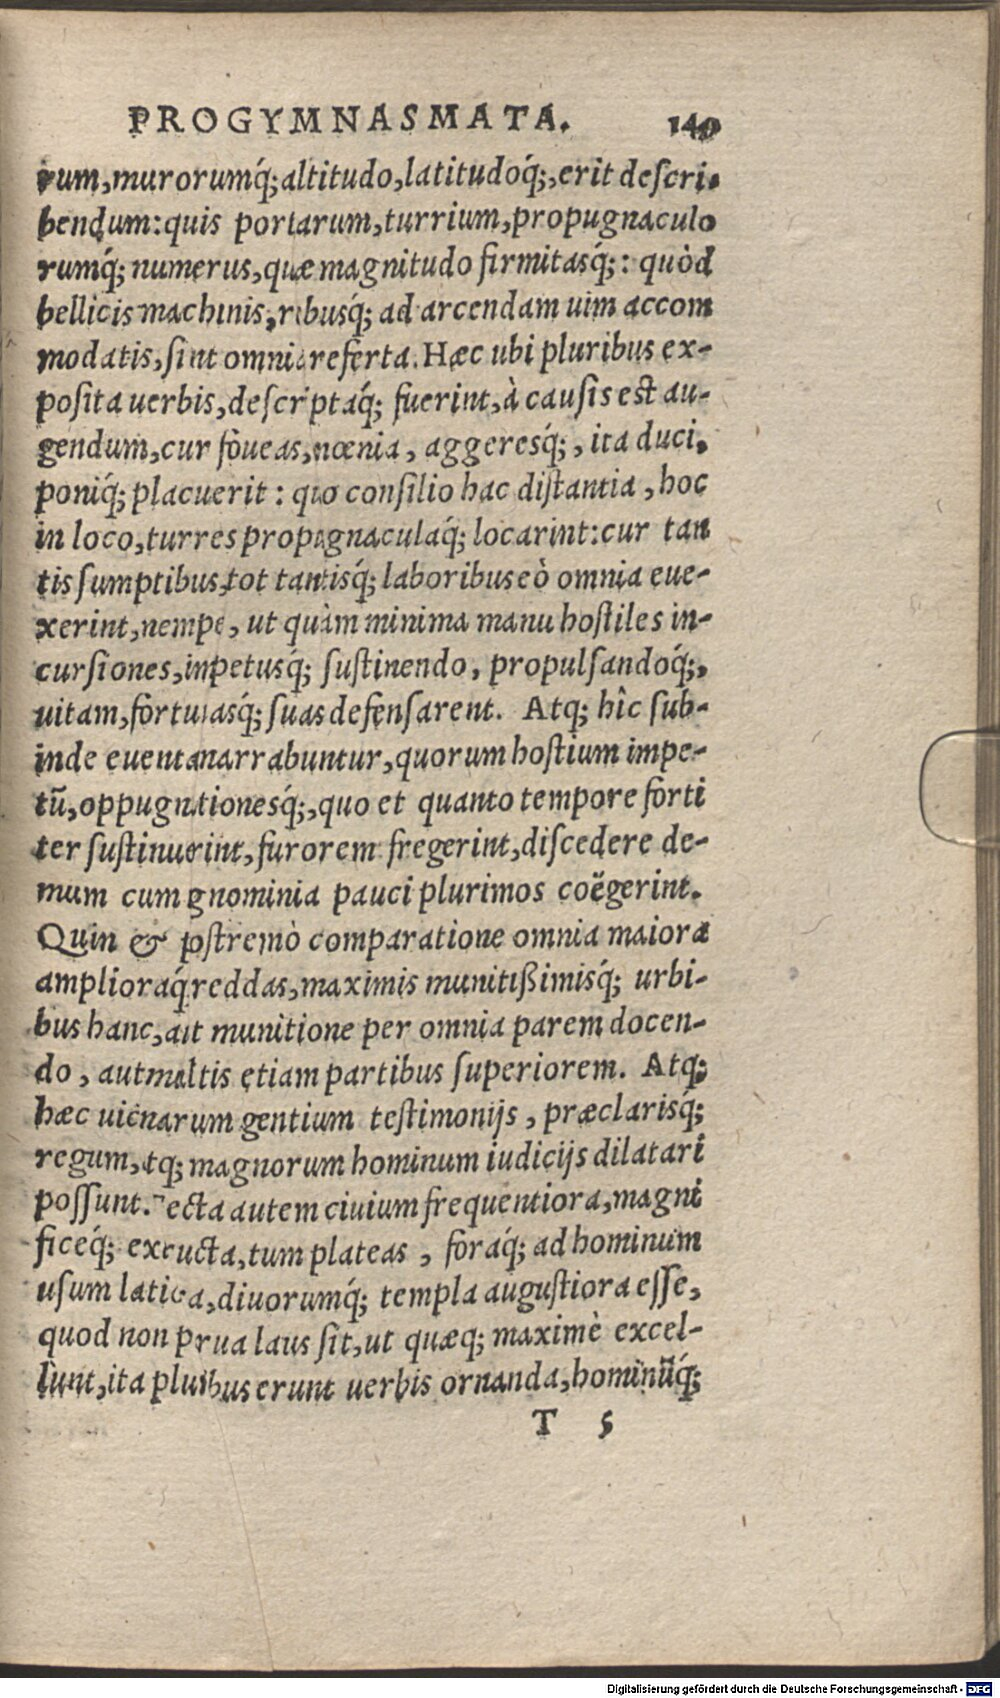 PROGYMNASMATA. 140
rum, murorumq́; altitudo, latitudoq́;, erit descri-
bendum: quis portarum, turrium, propugnaculo
rumq́; numerus, quæ magnitudo firmitasq́;: quòd
bellicis machinis, ribusq́; ad arcendam uim accom
modatis, sint omnia referta. Hæc ubi pluribus ex-
posita uerbis, descriptaq́; fuerint, à causis est au-
gendum, cur foueas, mœnia, aggeresq́;, ita duci,
poniq́; placuerit: quo consilio hac distantia, hoc
in loco, turres propugnaculaq́; locarint: cur tan
tis sumptibus, tot tantisq́; laboribus eò omnia eue-
xerint, nempe, ut quàm minima manu hostiles in-
cursiones, inpetusq́; sustinendo, propulsandoq́;,
uitam, fortunasq́; suas defensarent. Atq; hîc sub-
inde euenta narrabuntur, quorum hostium impe-
tũ, oppugnationesq́;, quo et quanto tempore forti
ter sustinuerint, furorem fregerint, discedere de-
mum cum ignominia pauci plurimos coëgerint.
Quin & postremò comparatione omnia maiora
amplioraq́ reddas, maximis munitißimisq́; urbi-
bus hanc, aut munitione per omnia parem docen-
do, aut multis etiam partibus superiorem. Atq;
hæc uicinarum gentium testimonijs, præclarisq́;
regum, atq; magnorum hominum iudicijs dilatari
possunt. Tecta autem ciuium frequentiora, magni
ficeq́; exructa, tum plateas, foraq́; ad hominum
usum latiora, diuorumq́; templa augustiora esse,
quod non prua laus sit, ut quæq; maximè excel-
lunt, ita pluribus erunt uerbis ornanda, hominũq́;
T 5
Digitalisierung gefördert durch die Deutsche Forschungsgemeinschaft - DFG